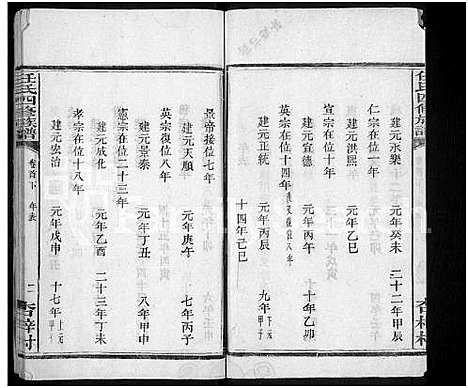 任氏四修族譜
建元永樂 元年癸未 二十二年甲辰
仁宗在位一年
建元洪熙 元年乙巳
宣宗在位十年
建元宣德 元年丙午 十年乙卯
英宗在位十四年
建元正統 元年丙辰 九年甲子
十四年己巳
景帝接位七年
建元天順 元年庚午 七年丙子
英宗復位八年
建元景泰 元年丁丑 八年甲申
憲宗在位二十三年
建元成化 元年乙酉 二十三年丁未
孝宗在位十八年
建元宏治 元年戊申 十七年甲子
任氏四修族譜
卷首下 年表
二
杏梓村